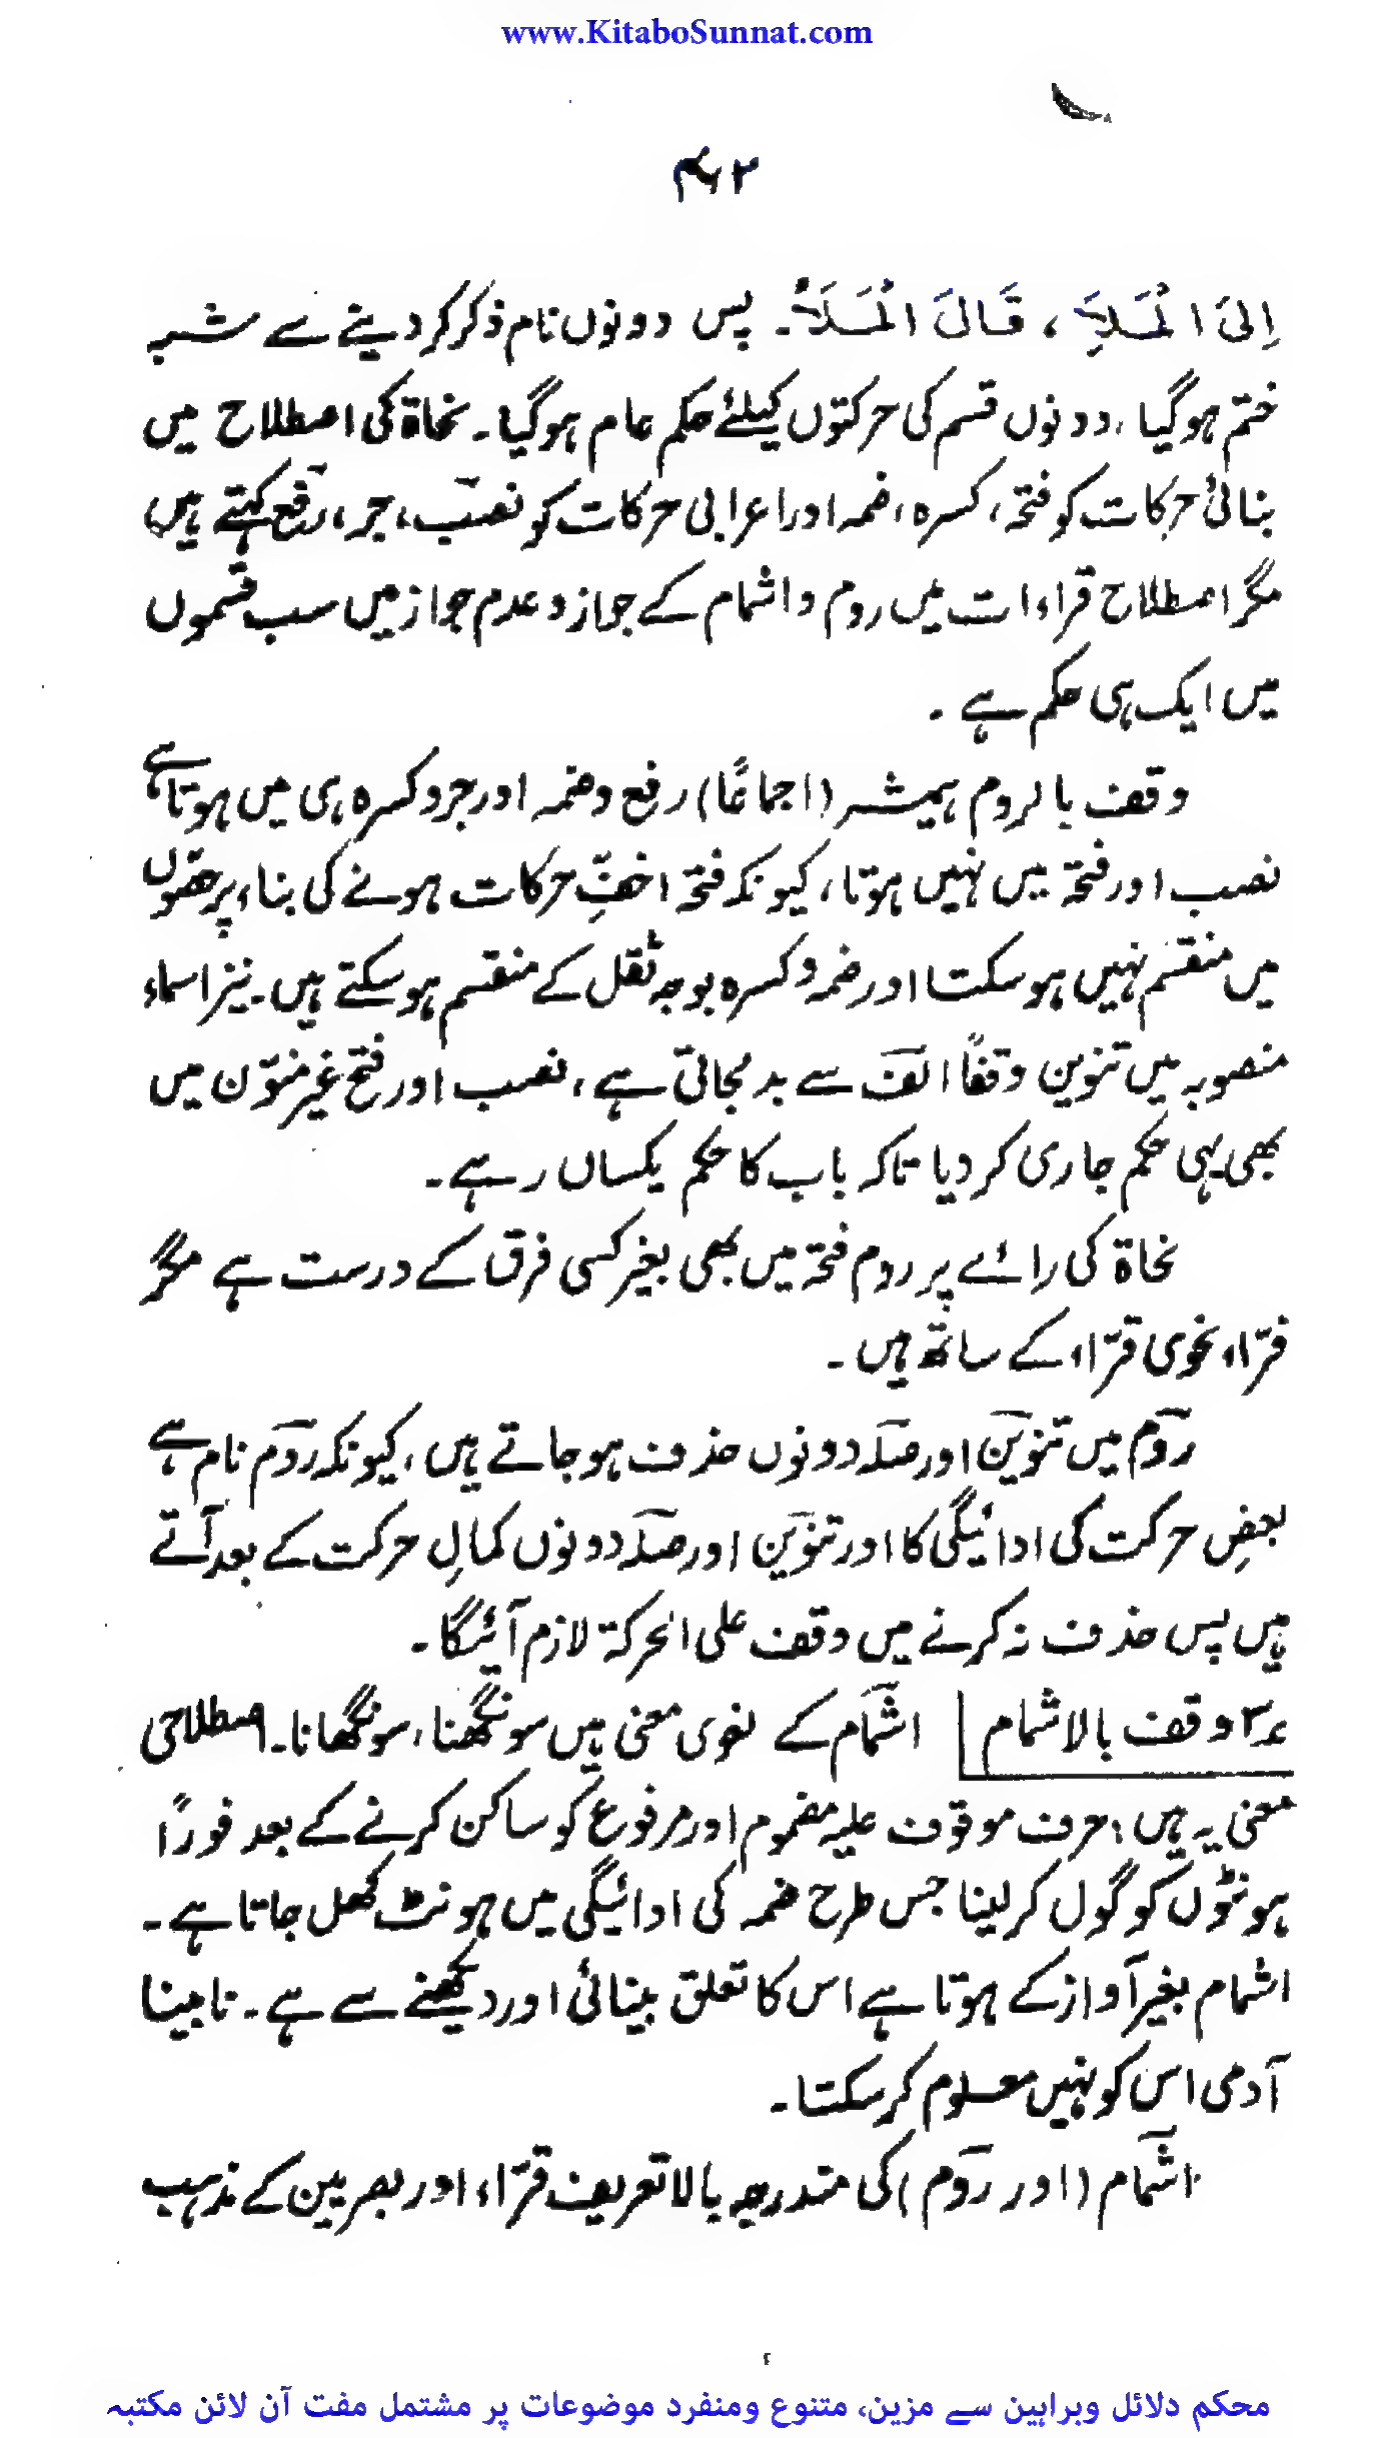 www.KitaboSunnat.com
اِلیَ الْمَلَأِ، قَالَ الْمَلَأُ۔ پس دونوں نام ذکر کر دینے سے شبہ
ختم ہوگیا، دونوں قسم کی حرکتوں کیلئے حکم عام ہوگیا۔ نحاۃ کی اصطلاح میں
بنائی حرکات کو فتحہ، کسرہ، ضمہ اور اعرابی حرکات کو نصب، جر، رفع کہتے ہیں
مگر اصطلاح قراءات میں روم و اشمام کے جواز و عدم جواز میں سب قسموں
میں ایک ہی حکم ہے ۔
وقف بالروم ہمیشہ (اجماعًا) رفع وضمہ اور جر وکسرہ ہی میں ہوتا ہے
نصب اور فتحہ میں نہیں ہوتا، کیونکہ فتحہ اخفِّ حرکات ہونے کی بناء پر حصّوں
میں منقسم نہیں ہوسکتا اور ضمہ وکسرہ بوجہ ثقل کے منقسم ہوسکتے ہیں۔ نیز اسماء
منصوبہ میں تنوین وقفًا الف سے بدلجاتی ہے، نصب اور فتح غیر منوّن میں
بھی یہی حکم جاری کردیا تاکہ باب کا حکم یکساں رہے۔
نحاۃ کی رائے پر روم فتحہ میں بھی بغیر کسی فرق کے درست ہے مگر
فرّاء نحوی قرّاء کے ساتھ ہیں ۔
روم میں تنوین اور صلہ دونوں حذف ہوجاتے ہیں، کیونکہ روم نام ہے
بعضِ حرکت کی ادائیگی کا اور تنوین اور صلہ دونوں کمالِ حرکت کے بعد آتے
ہیں پس حذف نہ کرنے میں وقف علی الحرکۃ لازم آئیگا۔
۳؎ وقف بالاشمام اشمام کے لغوی معنی ہیں سونگھنا، سونگھانا۔ اصطلاحی
معنی یہ ہیں: حرف موقوف علیہ مضموم اور مرفوع کو ساکن کرنے کے بعد فورًا
ہونٹوں کو گول کرلینا جس طرح ضمہ کی ادائیگی میں ہونٹ کھل جاتا ہے۔
اشمام بغیر آواز کے ہوتا ہے اس کا تعلق بینائی اور دیکھنے سے ہے۔ نابینا
آدمی اس کو نہیں معلوم کرسکتا۔
اشمام (اور روم) کی مندرجہ بالا تعریف قرّاء اور بصریین کے مذہب
محکم دلائل وبراہین سے مزین، متنوع ومنفرد موضوعات پر مشتمل مفت آن لائن مکتبہ